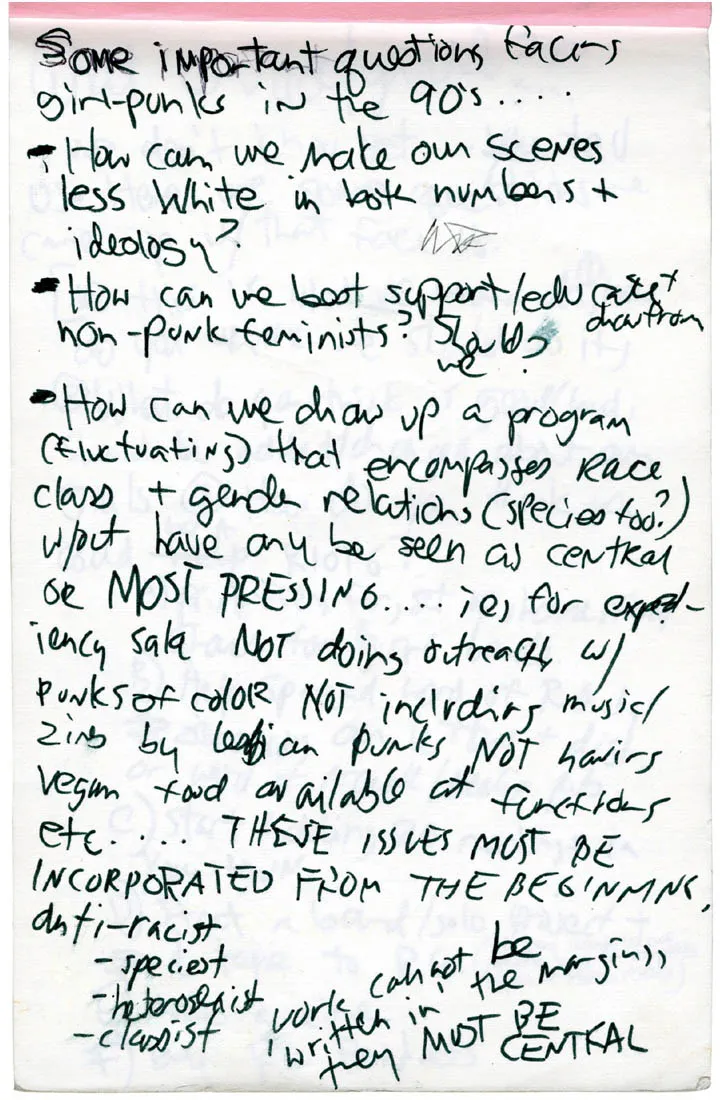 Some important questions facing
girl-punks in the 90's....
- How can we make our scenes
less white in both numbers +
ideology?
- How can we best support/educate +
draw from
non-punk feminists? Should
we?
- How can we draw up a program
(Fluctuating) that encompasses Race
class + gender relations (species too?)
w/out have any be seen as central
or MOST PRESSING.... ie, for exped-
iency sake NOT doing outreach w/
punks of color NOT including music/
zines by lesbian punks NOT having
vegan food available at functions
etc.... THESE ISSUES MUST BE
INCORPORATED FROM THE BEGINNING,
anti-racist
-speciest
-heterosexist
-classist
work cannot be
written in "the margins"
they MUST BE
CENTRAL